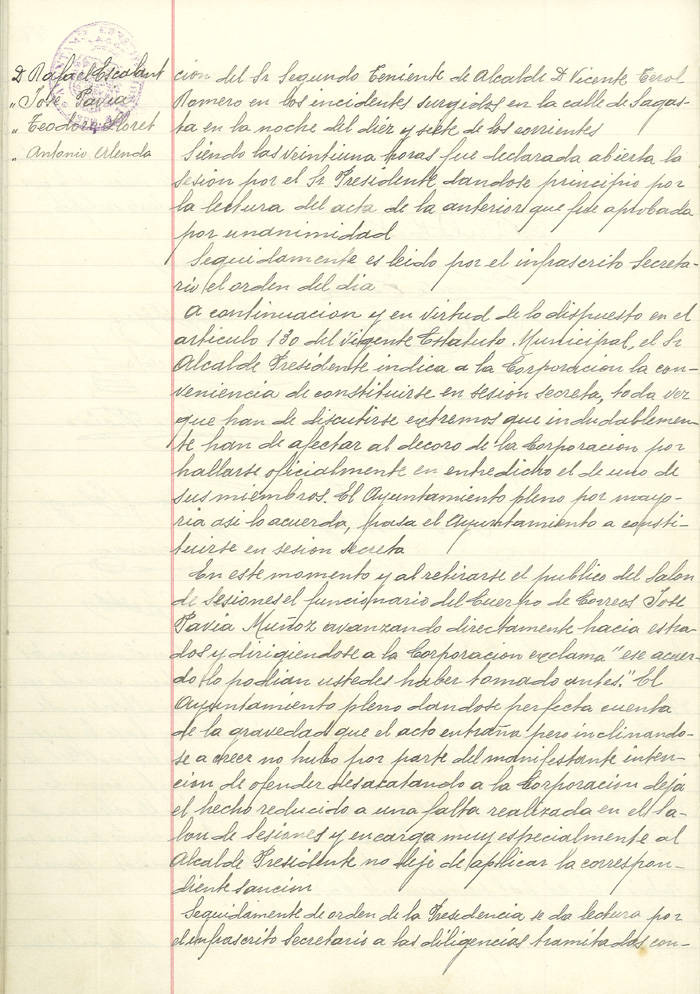 D Rafael Escolant
" José Pavia
" Teodoro Lloret
" Antonio Urlenda
cion del Sr Segundo Teniente de Alcalde D Vicente Terol
Romero en los incidentes surgidos en la calle de Sagas-
ta en la noche del diez y siete de los corrientes
Siendo las veintiuna horas fue declarada abierta la
sesion por el Sr Presidente dandose principio por
la lectura del acta de la anterior que fue aprobada
por unanimidad
Seguidamente es leido por el infrascrito Secreta-
rio el orden del dia
A continuacion y en virtud de lo dispuesto en el
articulo 130 del vigente Estatuto Municipal, el Sr
Alcalde Presidente indica a la Corporacion la con-
veniencia de constituirse en sesion secreta, toda vez
que han de discutirse extremos que indudablemen-
te han de afectar al decoro de la Corporacion por
hallarse oficialmente en entredicho el de uno de
sus miembros. El Ayuntamiento pleno por mayo-
ria asi lo acuerda, pasa el Ayuntamiento a consti-
tuirse en sesion secreta
En este momento y al retirarse el publico del Salon
de Sesiones el funcionario del Cuerpo de Correos José
Pavia Muñoz avanzando directamente hacia estra-
dos y dirigiendose a la Corporacion exclama "ese acuer-
do lo podian ustedes haber tomado antes." El
Ayuntamiento pleno dandose perfecta cuenta
de la gravedad que el acto entraña pero inclinando-
se a creer no hubo por parte del manifestante inten-
cion de ofender desacatando a la Corporacion deja
el hecho reducido a una falta realizada en el Sa-
lon de Sesiones y encarga muy especialmente al
Alcalde Presidente no deje de aplicar la correspon-
diente sancion
Seguidamente de orden de la Presidencia se da lectura por
el infrascrito Secretario a las diligencias tramitadas con-